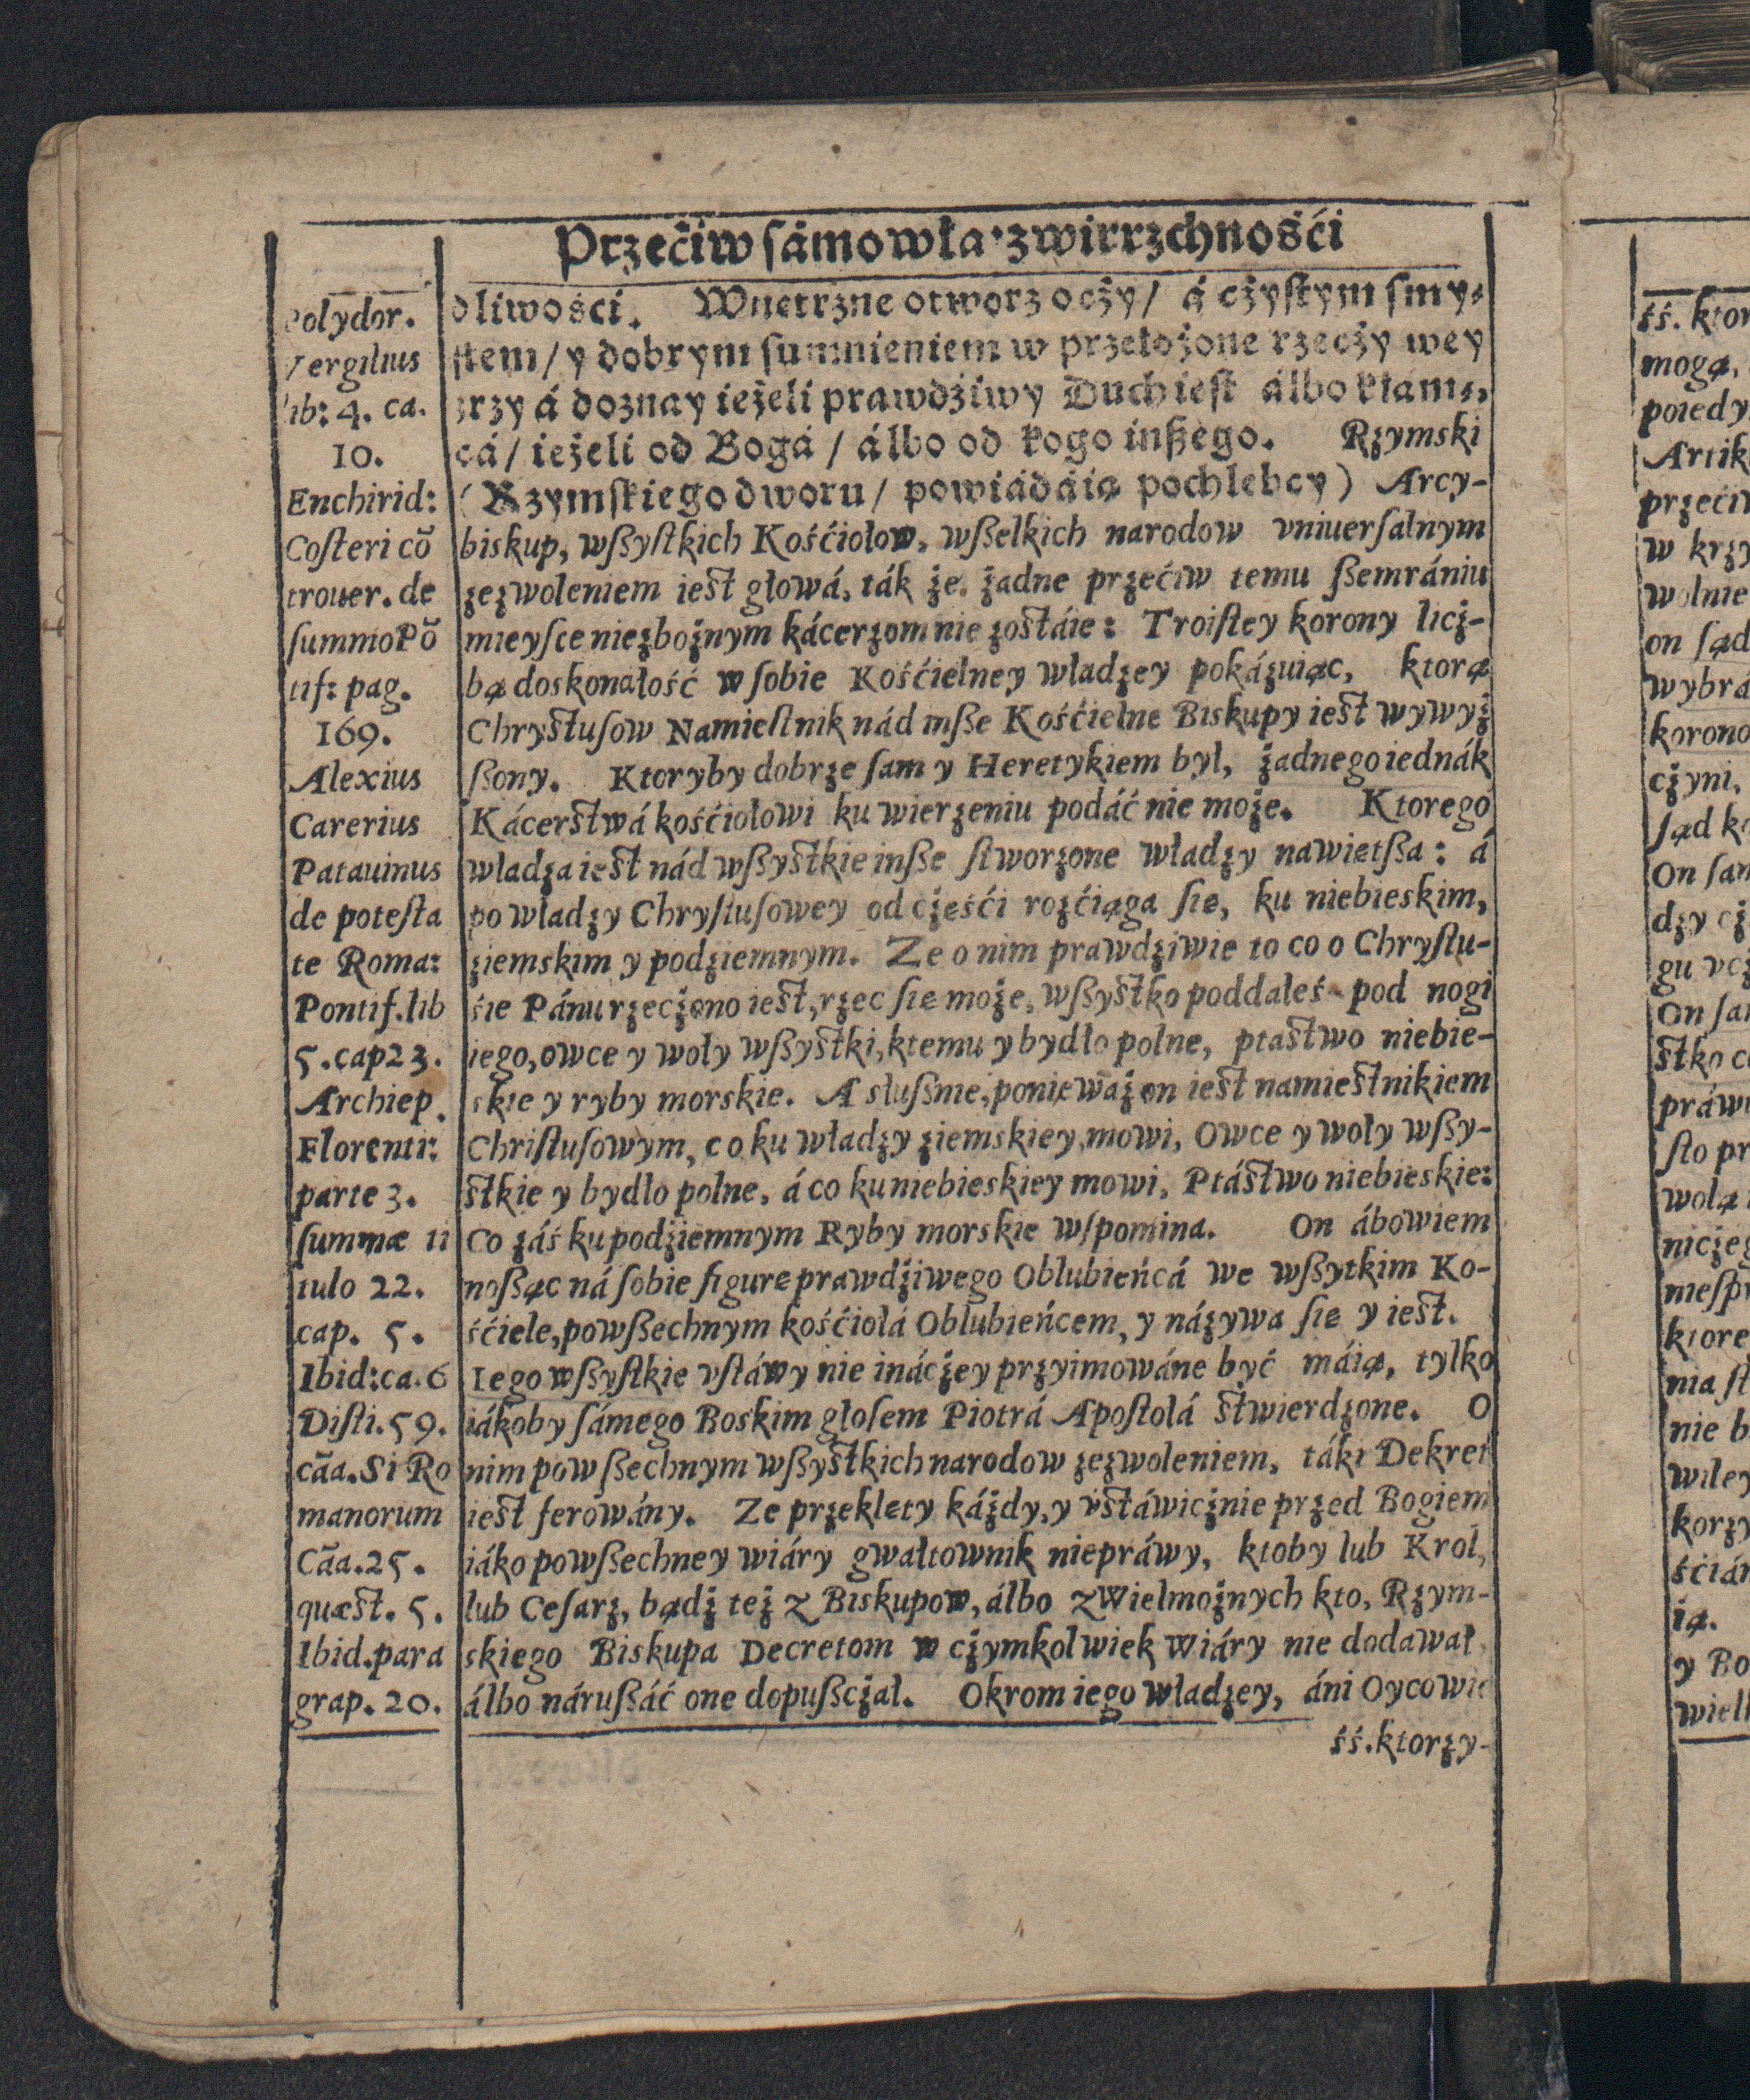 Przećiw sámowła zwirrzchnośći
Polydor.
Vergilius
lib: 4. ca.
10.
Enchirid:
Costeri cō
trouer. de
summo Pō
tif: pag.
169.
Alexius
Carerius
Patauinus
de potesta
te Roma:
Pontif. lib
5. cap 23.
Archiep.
Florenti:
parte 3.
summæ ti
tulo 22.
cap. 5.
Ibid: ca. 6
Disti. 59.
cāa. Si Ro
manorum
Cāa. 25.
quæst. 5.
Ibid. para
grap. 20.
dliwości. Wnetrzne otworz oczy / á czystym smy-
słem / y dobrym sumnieniem w przełożone rzeczy wey
zrzy á doznay ieżeli prawdźiwy Duch iest álbo kłam-
cá / ieżeli od Bogá / álbo od kogo inßego. Rzymski
(Rzymskiego dworu / powiádáią pochlebcy) Arcy-
biskup, wßystkich Kośćiołow, wßelkich narodow vniuersalnym
zezwoleniem iest głowá, ták że żadne przećiw temu ßemrániu
mieysce niezbożnym kácerzom nie zostáie: Troistey korony licż-
bą doskonałość w sobie Kośćielney władzey pokázuiąc, ktorą
Chrystusow Namiestnik nád inße Kośćielne Biskupy iest wywyż
ßony. Ktoryby dobrze sam y Heretykiem był, żadnego iednák
Kácerstwá kośćiołowi ku wierzeniu podáć nie może. Ktorego
władza iest nád wßystkie inße stworzone władzy nawietßa: á
po władzy Chrystusowey od cżeśći rozćiąga sie, ku niebieskim,
ziemskim y podziemnym. Ze o nim prawdziwie to co o Chrystu-
śie Pánu rzecżono iest, rzec sie może, wßystko poddałeś pod nogi
iego, owce y woły wßystki, ktemu y bydło polne, ptastwo niebie-
skie y ryby morskie. A słußnie, ponieważ on iest namiestnikiem
Christusowym, co ku władzy ziemskiey, mowi, Owce y woły wßy-
stkie y bydło polne, á co ku niebieskiey mowi, Ptástwo niebieskie:
Co záś ku podżiemnym Ryby morskie wspomina. On ábowiem
noßąc ná sobie figure prawdżiwego Oblubieńcá we wßytkim Ko-
śćiele, powßechnym kośćiołá Oblubieńcem, y názywa sie y iest.
Iego wßystkie vstáwy nie inácżey przyimowáne być máią, tylko
iákoby sámego Boskim głosem Piotrá Apostołá stwierdzone. O
nim powßechnym wßystkich narodow zezwoleniem, táki Dekret
iest ferowány. Ze przeklety káżdy, y vstáwicżnie przed Bogiem
iáko powßechney wiáry gwałtownik niepráwy, ktoby lub Krol,
lub Cesarz, bądż też z Biskupow, álbo z Wielmożnych kto, Rzym-
skiego Biskupa Decretom w cżymkolwiek wiáry nie dodawał,
álbo nárußáć one dopußcżał. Okrom iego władzey, áni Oycowie
śś. ktorzy-
śś. ktor
mogą,
poiedy
Artik
przećiw
w krzy
wolnie
on sąd
wybrá
korono
cżyni,
sąd k
On sam
dzy cż
gu vcż
On sam
stko c
práw
sto pr
wolą
nicżeg
niespr
ktore
nia st
nie b
wiley
korzy
śćián
ią.
y Bo
wiel